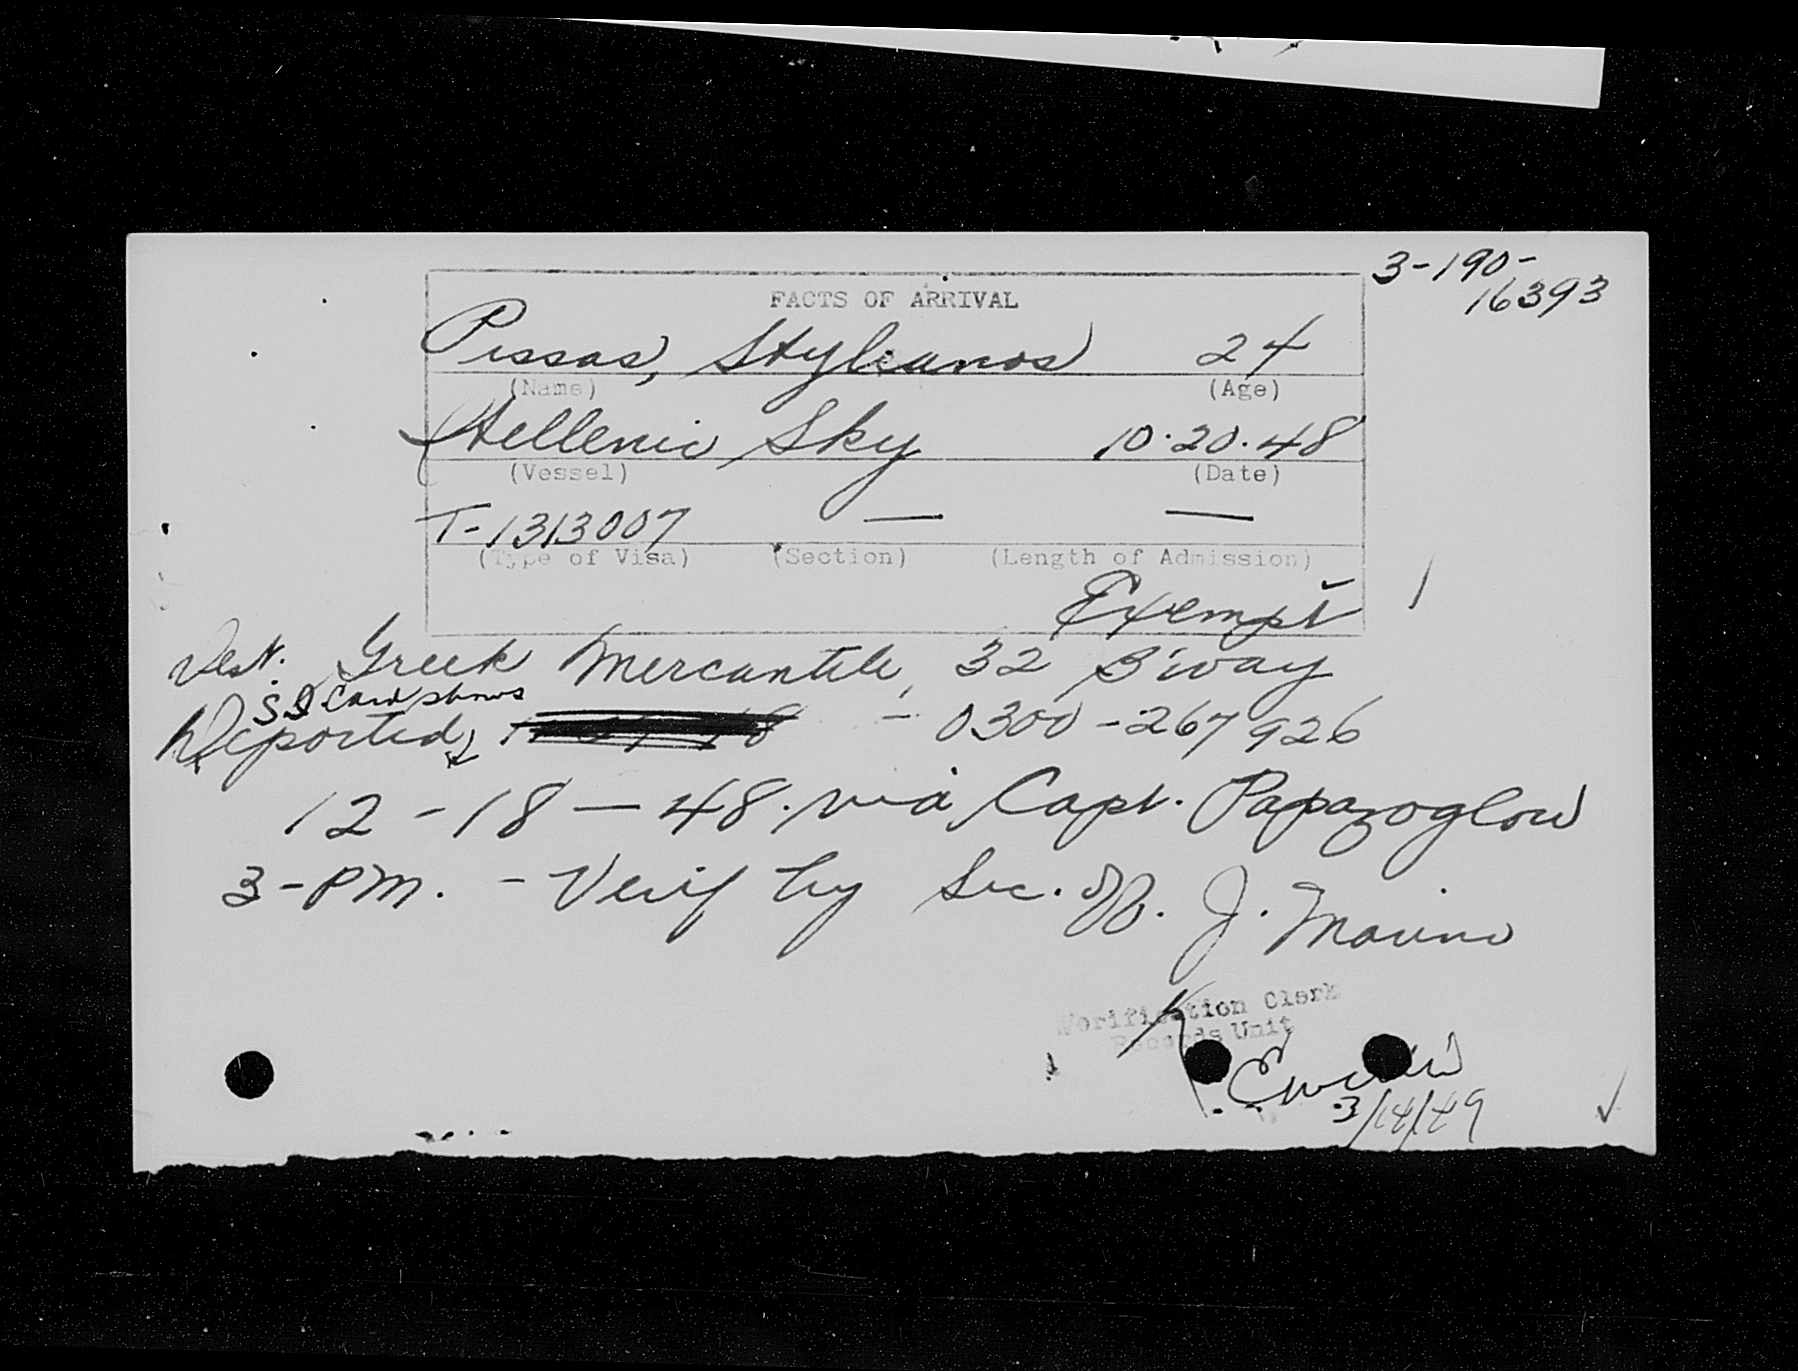 3-190-
16393
FACTS OF ARRIVAL
Pissas, Stylianos 24
(Name) (Age)
Hellenic Sky 10.20.48
(Vessel) (Date)
T-1313007 — —
(Type of Visa) (Section) (Length of Admission)
Exempt
Dest. Greek Mercantile, 32 B'way
S I Card shows
Deported, - 0300-267926
12-18-48. via Capt. Papazoglou
3-PM. - Verif by Sec. J. Marino
Verification Clerk
Records Unit
3/14/49